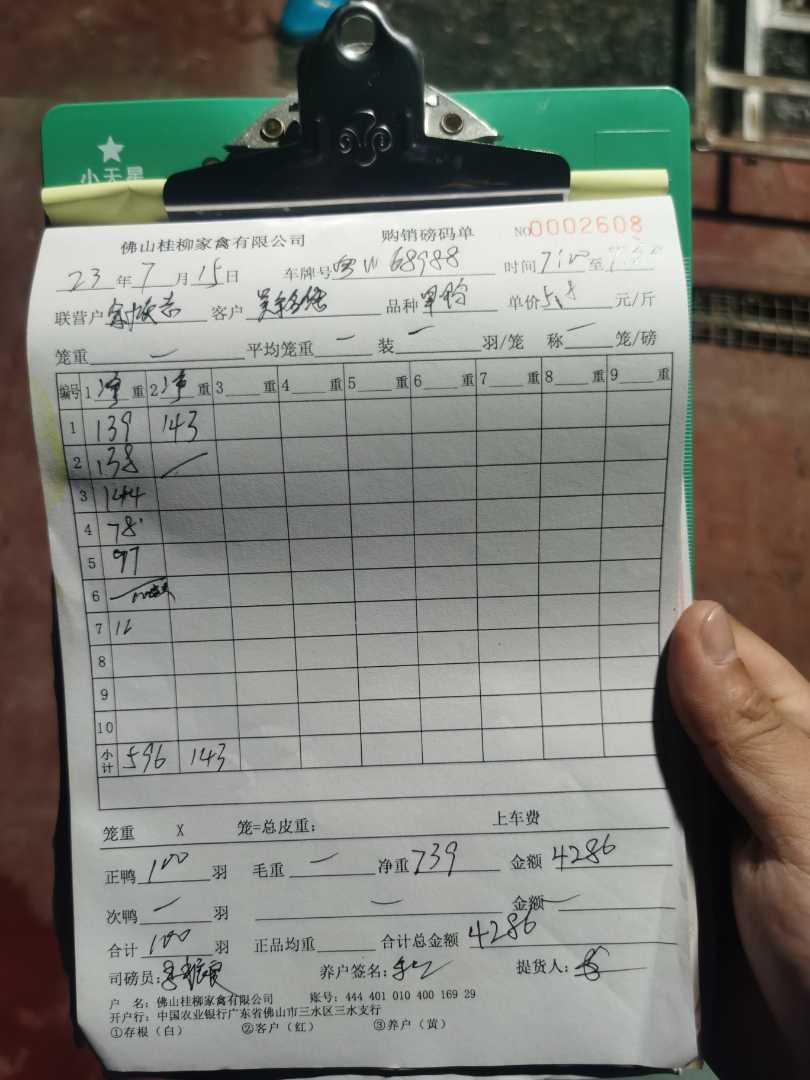 小天星
佛山桂柳家禽有限公司 购销磅码单 NO0002608
23年7月15日 车牌号 68988 时间7:00至
联营户 客户 品种 单价5.8元/斤
笼重— 平均笼重— 装—羽/笼 称—笼/磅
编号 1净重 2净重 3重 4重 5重 6重 7重 8重 9重
1 139 143
2 138 /
3 144
4 78
5 97
6
7
8
9
10
小计 596 143
笼重 X 笼=总皮重: 上车费
正鸭100羽 毛重— 净重739 金额4286
次鸭—羽 — 金额—
合计100羽 正品均重 合计总金额4286
司磅员: 养户签名: 提货人:
户 名: 佛山桂柳家禽有限公司 账号: 444 401 010 400 169 29
开户行: 中国农业银行广东省佛山市三水区三水支行
①存根（白） ②客户（红） ③养户（黄）